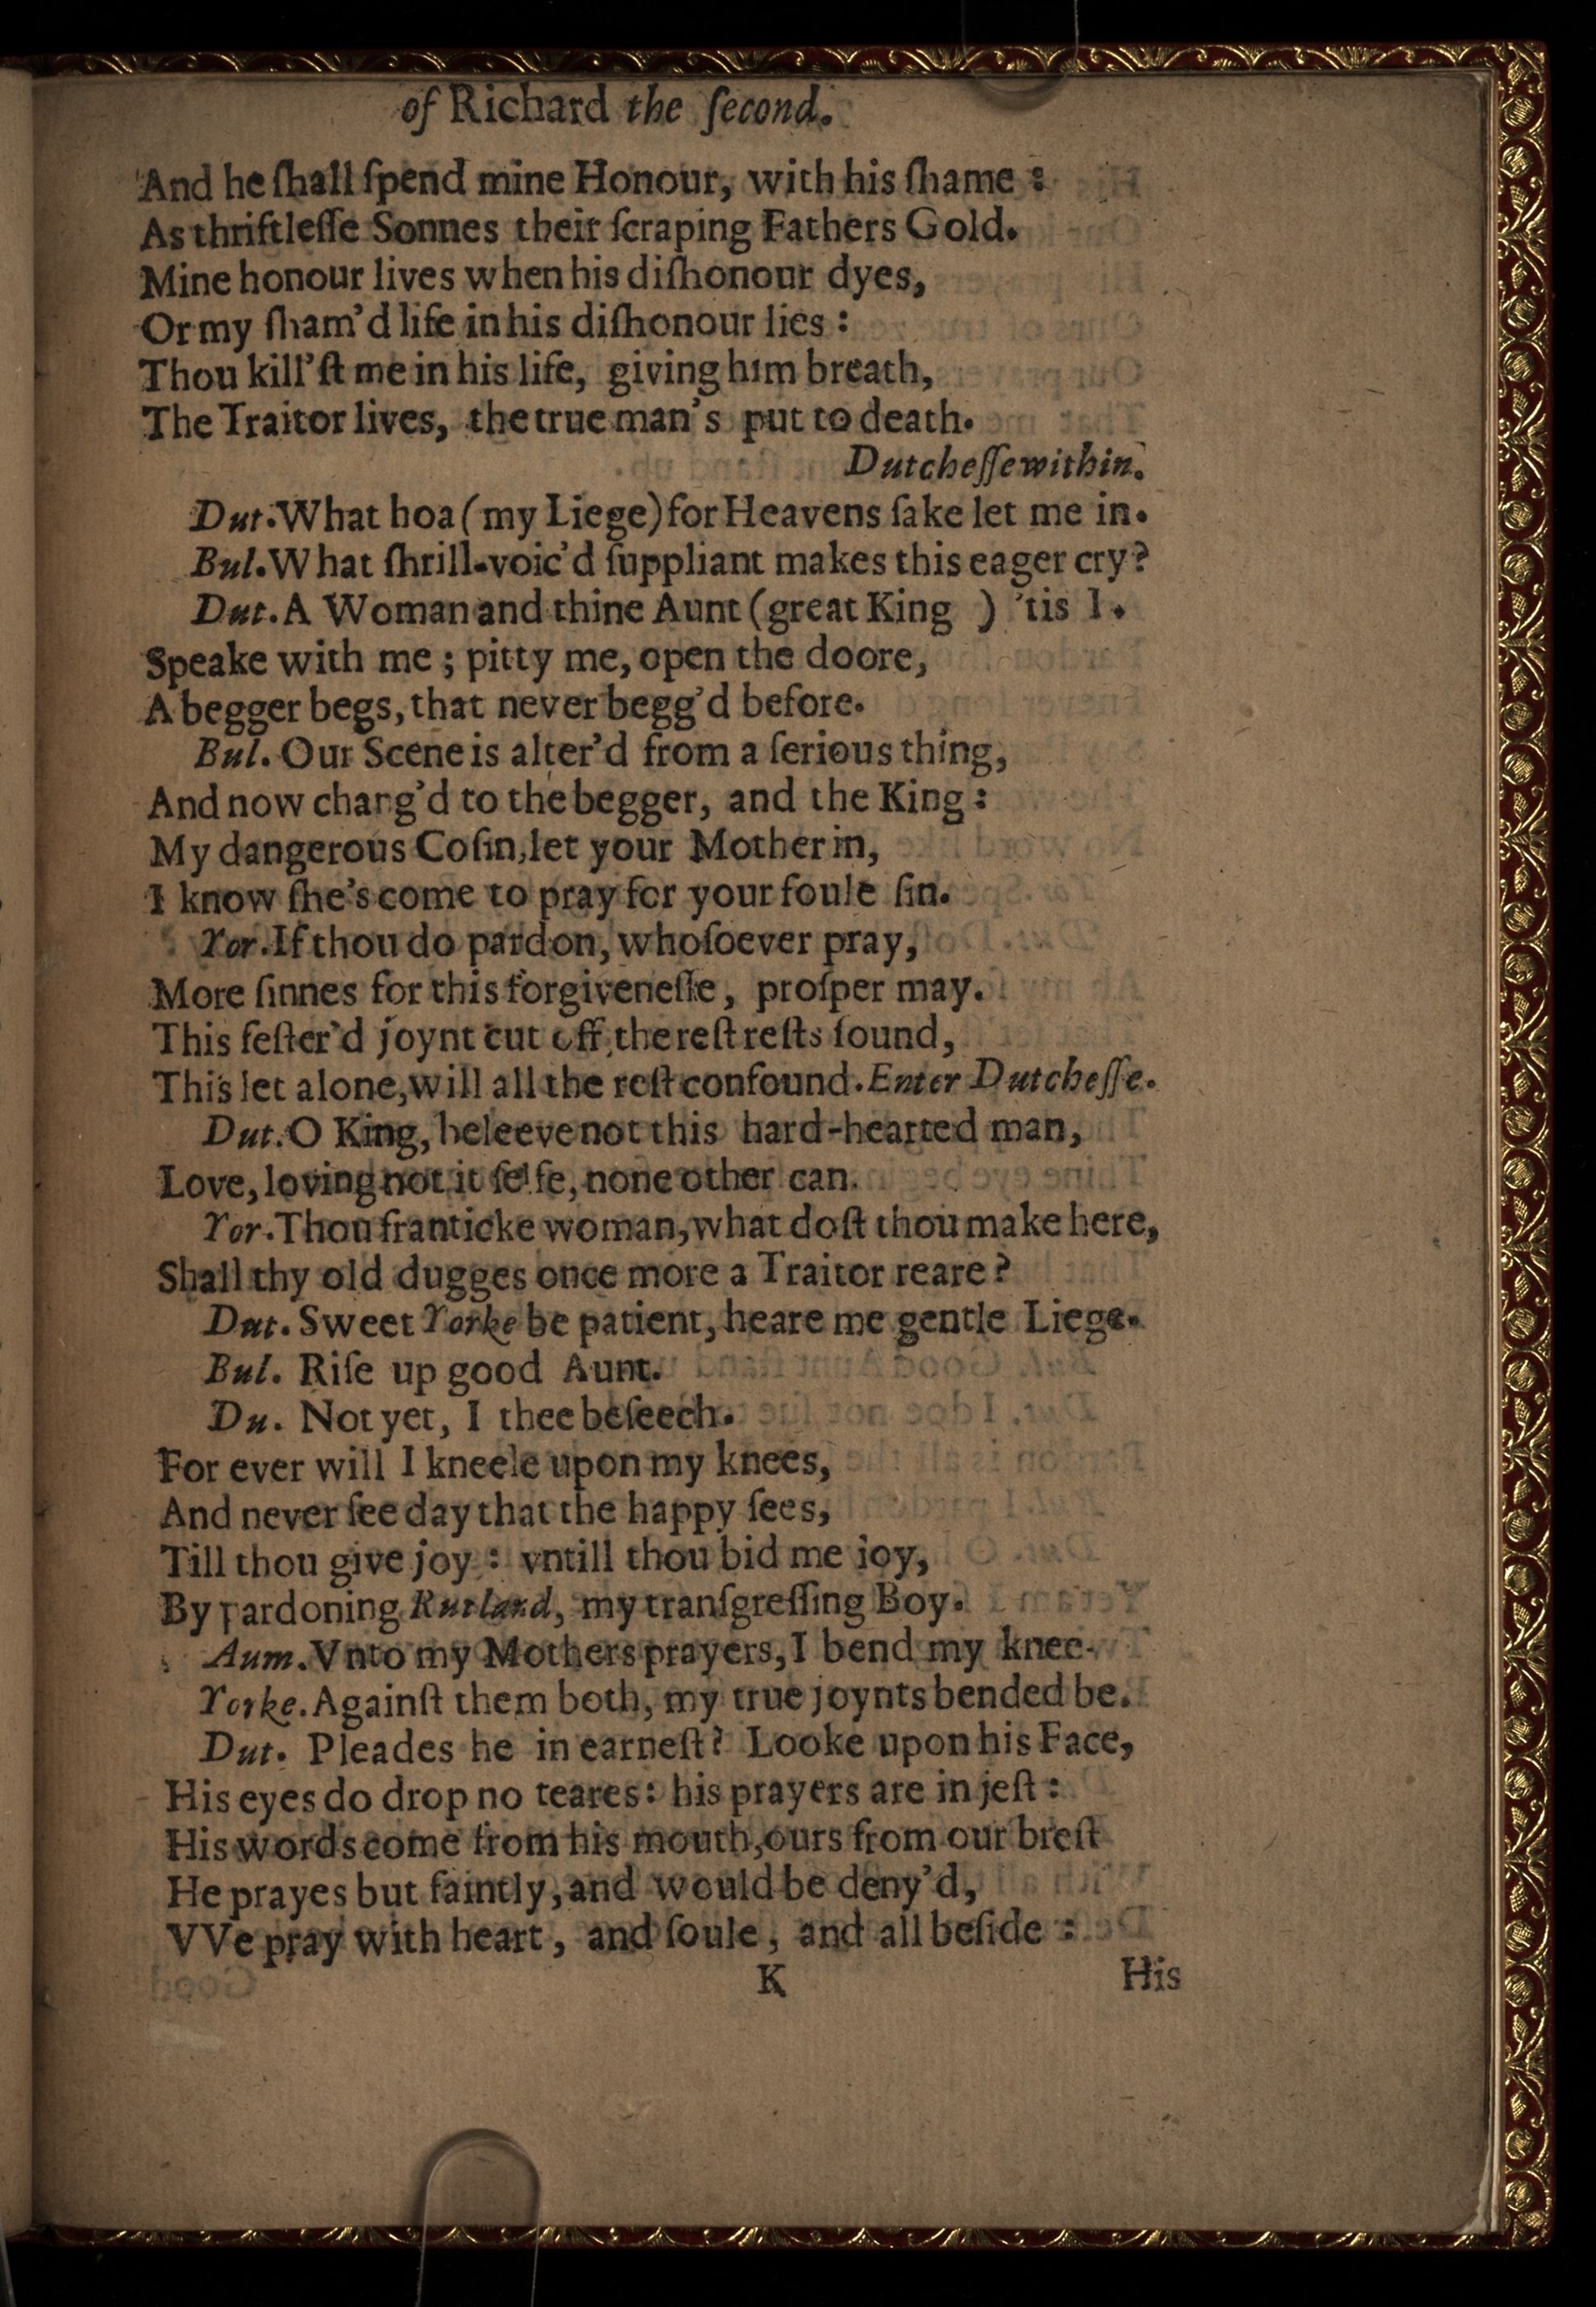 of Richard the ſecond.
And he ſhall ſpend mine Honour, with his ſhame :
As thriftleſſe Sonnes their ſcraping Fathers Gold.
Mine honour lives when his diſhonour dyes,
Or my ſham'd life in his diſhonour lies :
Thou kill'ſt me in his life, giving him breath,
The Traitor lives, the true man's put to death.
Dutcheſſe within.
Dut. What hoa (my Liege) for Heavens ſake let me in.
Bul. What ſhrill-voic'd ſuppliant makes this eager cry?
Dut. A Woman and thine Aunt (great King ) 'tis I.
Speake with me ; pitty me, open the doore,
A begger begs, that never begg'd before.
Bul. Our Scene is alter'd from a ſerious thing,
And now chang'd to the begger, and the King :
My dangerous Coſin, let your Mother in,
I know ſhe's come to pray for your foule ſin.
Yor. If thou do pardon, whoſoever pray,
More ſinnes for this forgiveneſſe, proſper may.
This feſter'd joynt cut off, the reſt reſts ſound,
This let alone, will all the reſt confound. Enter Dutcheſſe.
Dut. O King, beleeve not this hard-hearted man,
Love, loving not it ſelfe, none other can.
Yor. Thou franticke woman, what doſt thou make here,
Shall thy old dugges once more a Traitor reare ?
Dut. Sweet Yorke be patient, heare me gentle Liege.
Bul. Riſe up good Aunt.
Du. Not yet, I thee beſeech.
For ever will I kneele upon my knees,
And never ſee day that the happy ſees,
Till thou give joy : vntill thou bid me ioy,
By pardoning Rutland, my tranſgreſſing Boy.
Aum. Vnto my Mothers prayers, I bend my knee.
Yorke. Againſt them both, my true joynts bended be.
Dut. Pleades he in earneſt? Looke upon his Face,
His eyes do drop no teares : his prayers are in jeſt :
His words come from his mouth, ours from our breſt
He prayes but faintly, and would be deny'd,
VVe pray with heart, and ſoule, and all beſide :
K His